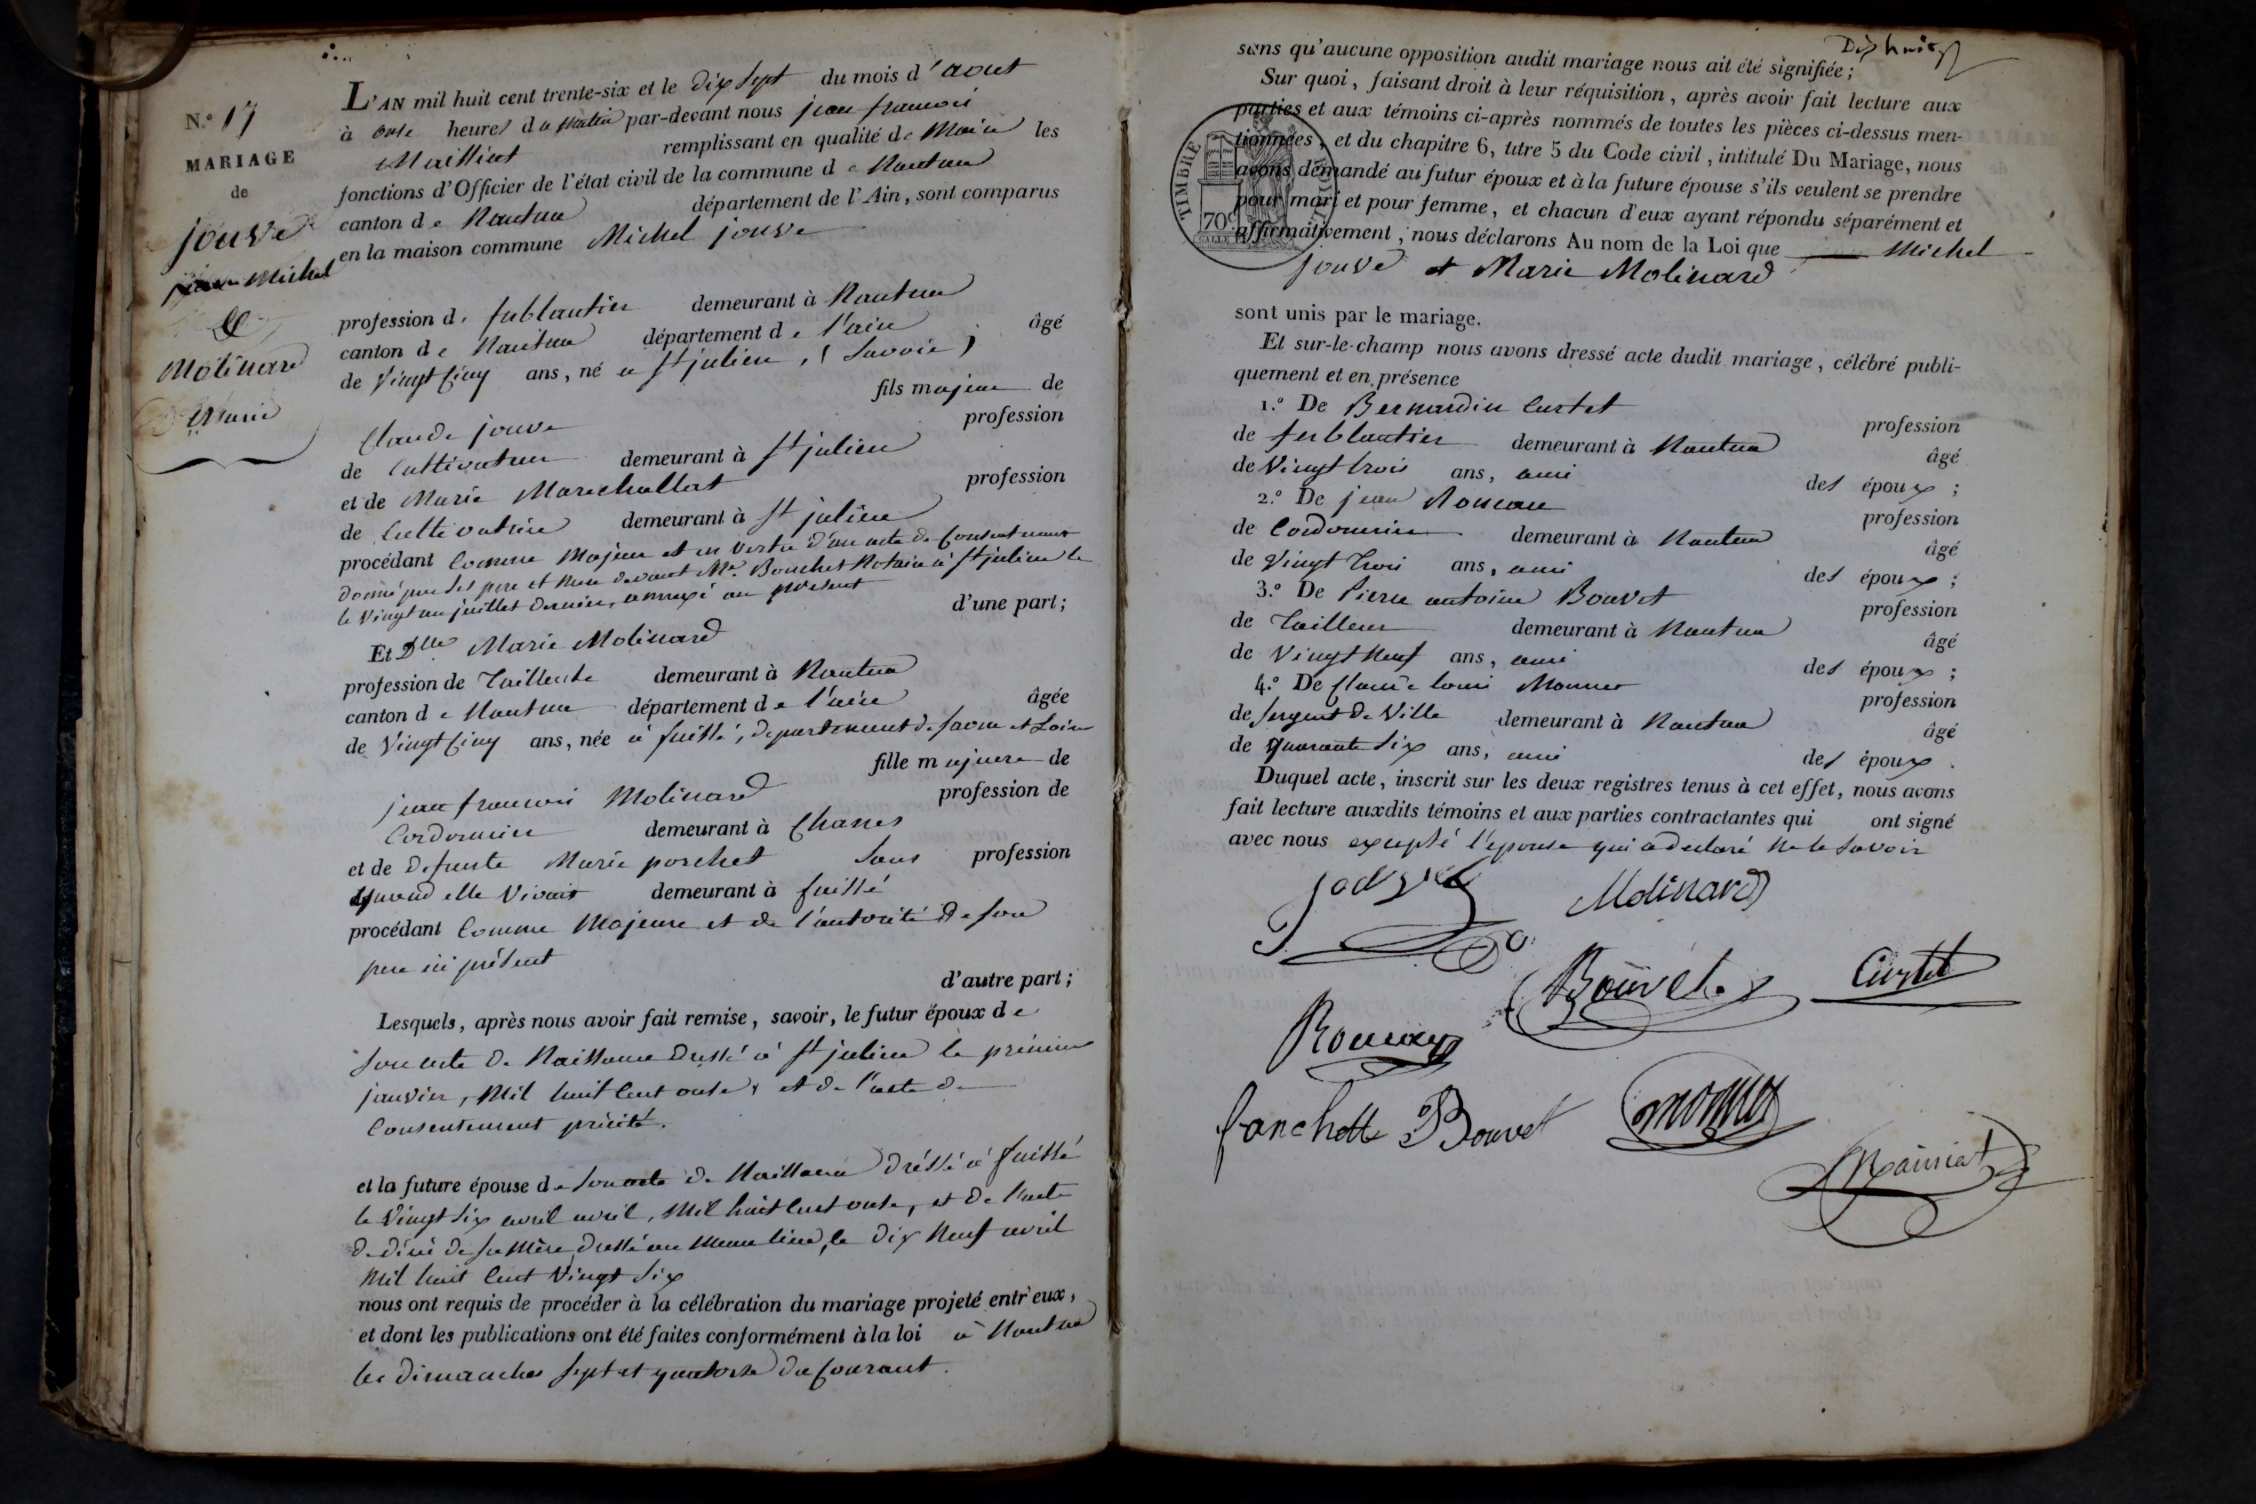 N.º 17
MARIAGE
de
Jouve
Michel
&
Molinard
Marie
L'AN mil huit cent trente-six et le dix sept du mois d'aout
à onze heures du matin par-devant nous jean francois
Maillint remplissant en qualité de Maire les
fonctions d'Officier de l'état civil de la commune de Nantua
canton de Nantua département de l'Ain, sont comparus
en la maison commune Michel jouve
profession de ferblantier demeurant à Nantua
canton de Nantua département de l'ain âgé
de vingt cinq ans, né a St julien, (Savoie)
fils majeur de
Claude jouve profession
de Cultivateur demeurant à St julien
et de Marie Marechallat profession
de Cultivatrice demeurant à St julien
procédant Comme Majeur et en vertu d'un acte de Consentement
donné par ses pere et mere devant Me. Bouchet Notaire à St julien le
le vingt un juillet dernier, annexé au présent
d'une part;
Et Dlle Marie Molinard
profession de Tailleuse demeurant à Nantua
canton de Nantua département de l'ain âgée
de vingt cinq ans, née à fuissé, departement de Saone et Loire
fille majeure de
jean francois Molinard profession de
Cordonnier demeurant à Chanes
et de defunte Marie porchet Sans profession
quand elle vivait demeurant à fuissé
procédant Comme Majeure et de l'autorité de son
pere ici présent
d'autre part;
Lesquels, après nous avoir fait remise, savoir, le futur époux de
son acte de Naissance dressé à St julien le premier
janvier, Mil huit Cent onze, et de l'acte de
Consentement précité.
et la future épouse de son acte de Naissance dréssé à fuissé
le vingt six avril avril, Mil huit Cent onze, et de l'acte
de décé de sa mère, dressé au meme lieu, le dix Neuf avril
Mil huit Cent vingt six
nous ont requis de procéder à la célébration du mariage projeté entr'eux,
et dont les publications ont été faites conformément à la loi à Nantua
les dimanches sept et quatorze du Courant.
Dix huit
sans qu'aucune opposition audit mariage nous ait été signifiée;
Sur quoi, faisant droit à leur réquisition, après avoir fait lecture aux
parties et aux témoins ci-après nommés de toutes les pièces ci-dessus men-
tionnées, et du chapitre 6, titre 5 du Code civil, intitulé Du Mariage, nous
avons demandé au futur époux et à la future épouse s'ils veulent se prendre
pour mari et pour femme, et chacun d'eux ayant répondu séparément et
affirmativement, nous déclarons Au nom de la Loi que Michel
jouve et Marie Molinard
TIMBRE ROYAL
70c
sont unis par le mariage.
Et sur-le-champ nous avons dressé acte dudit mariage, célébré publi-
quement et en présence
1.º De Bernardin Curtet profession
de ferblantier demeurant à Nantua âgé
de vingt trois ans, ami des époux;
2.º De jean Rousseau profession
de Cordonnier demeurant à Nantua âgé
de vingt trois ans, ami des époux;
3.º De Pierre antoine Bouvet profession
de Tailleur demeurant à Nantua âgé
de vingt Neuf ans, ami des époux;
4.º De Claude louis Monnet profession
de sergent de ville demeurant à Nantua âgé
de quarante six ans, ami des époux.
Duquel acte, inscrit sur les deux registres tenus à cet effet, nous avons
fait lecture auxdits témoins et aux parties contractantes qui ont signé
avec nous excepté l'épouse qui a declaré ne le savoir
Jouve Molinard
Bouvet Curtet
fanchette Bouvet Monnet